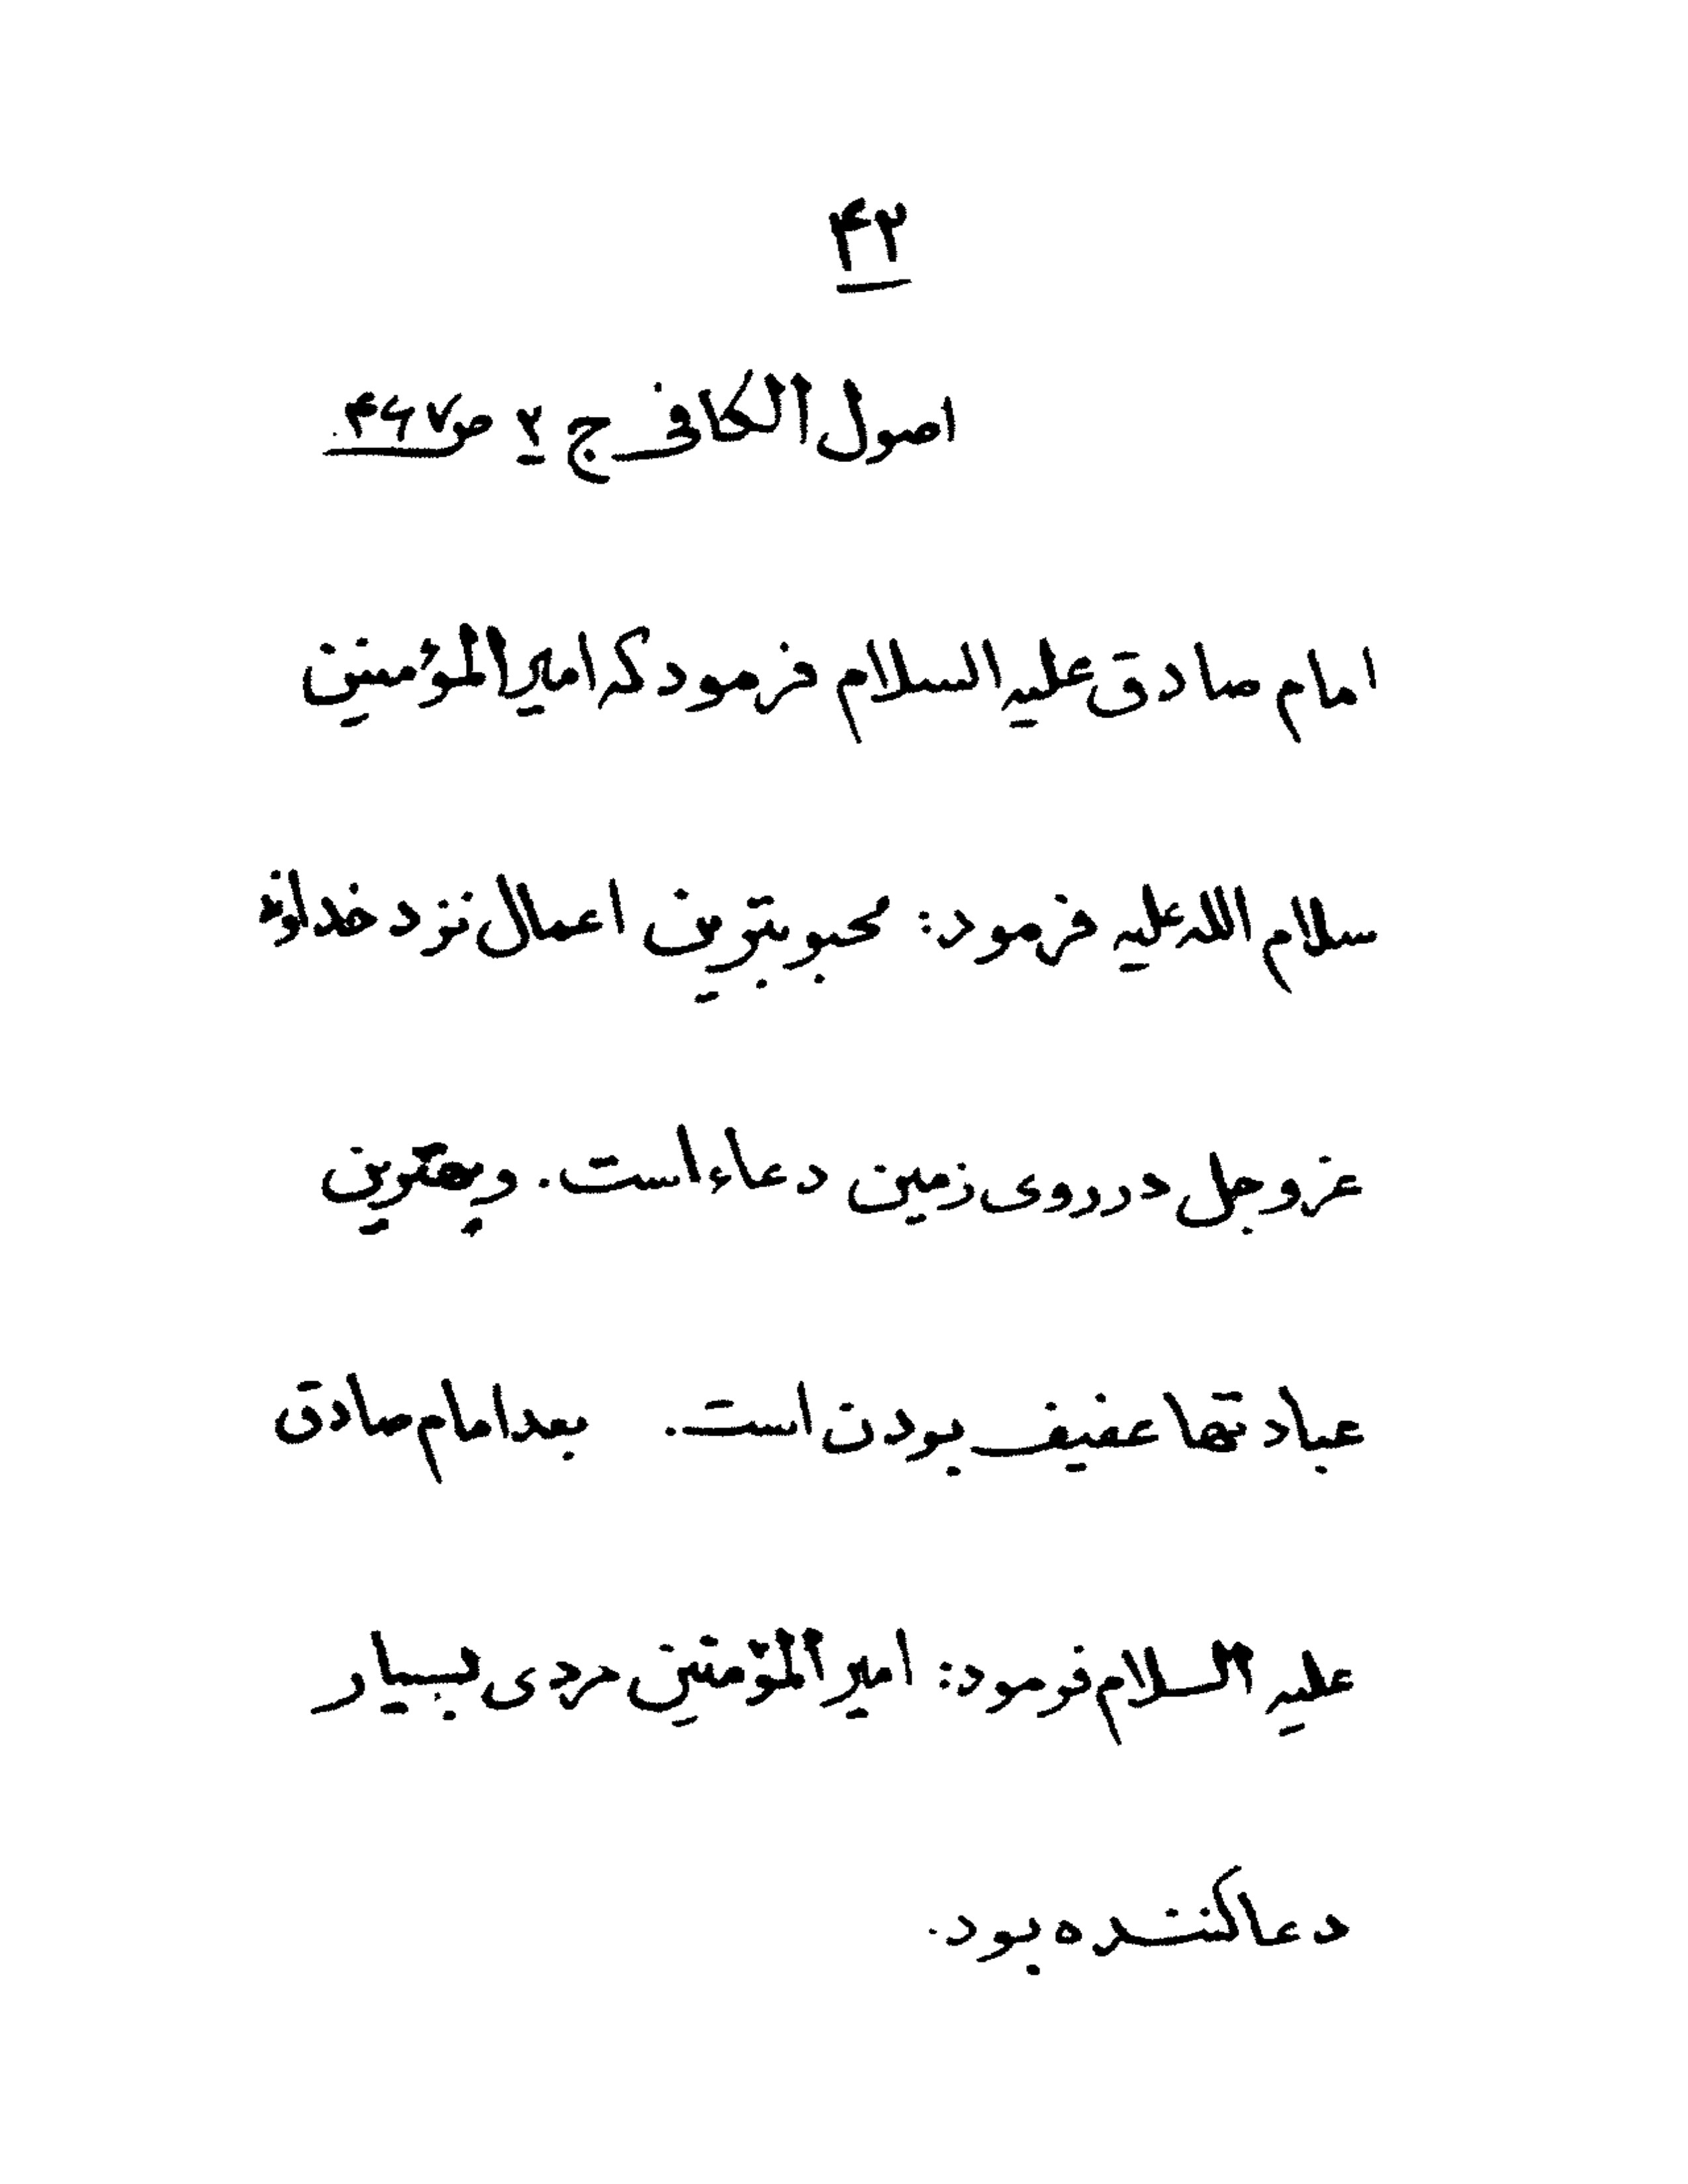 ۴۲
اصول الکافی ج ۲ ص ۴۶۷
امام صادق علیه السلام فرمود که امیرالمؤمنین
سلام الله علیه فرمود: محبوبترین اعمال نزد خداوند
عز و جل در روی زمین دعاء است. و بهترین
عبادتها عفیف بودن است. بعد امام صادق
علیه السلام فرمود: امیرالمؤمنین مردی بسیار
دعا کننده بود.